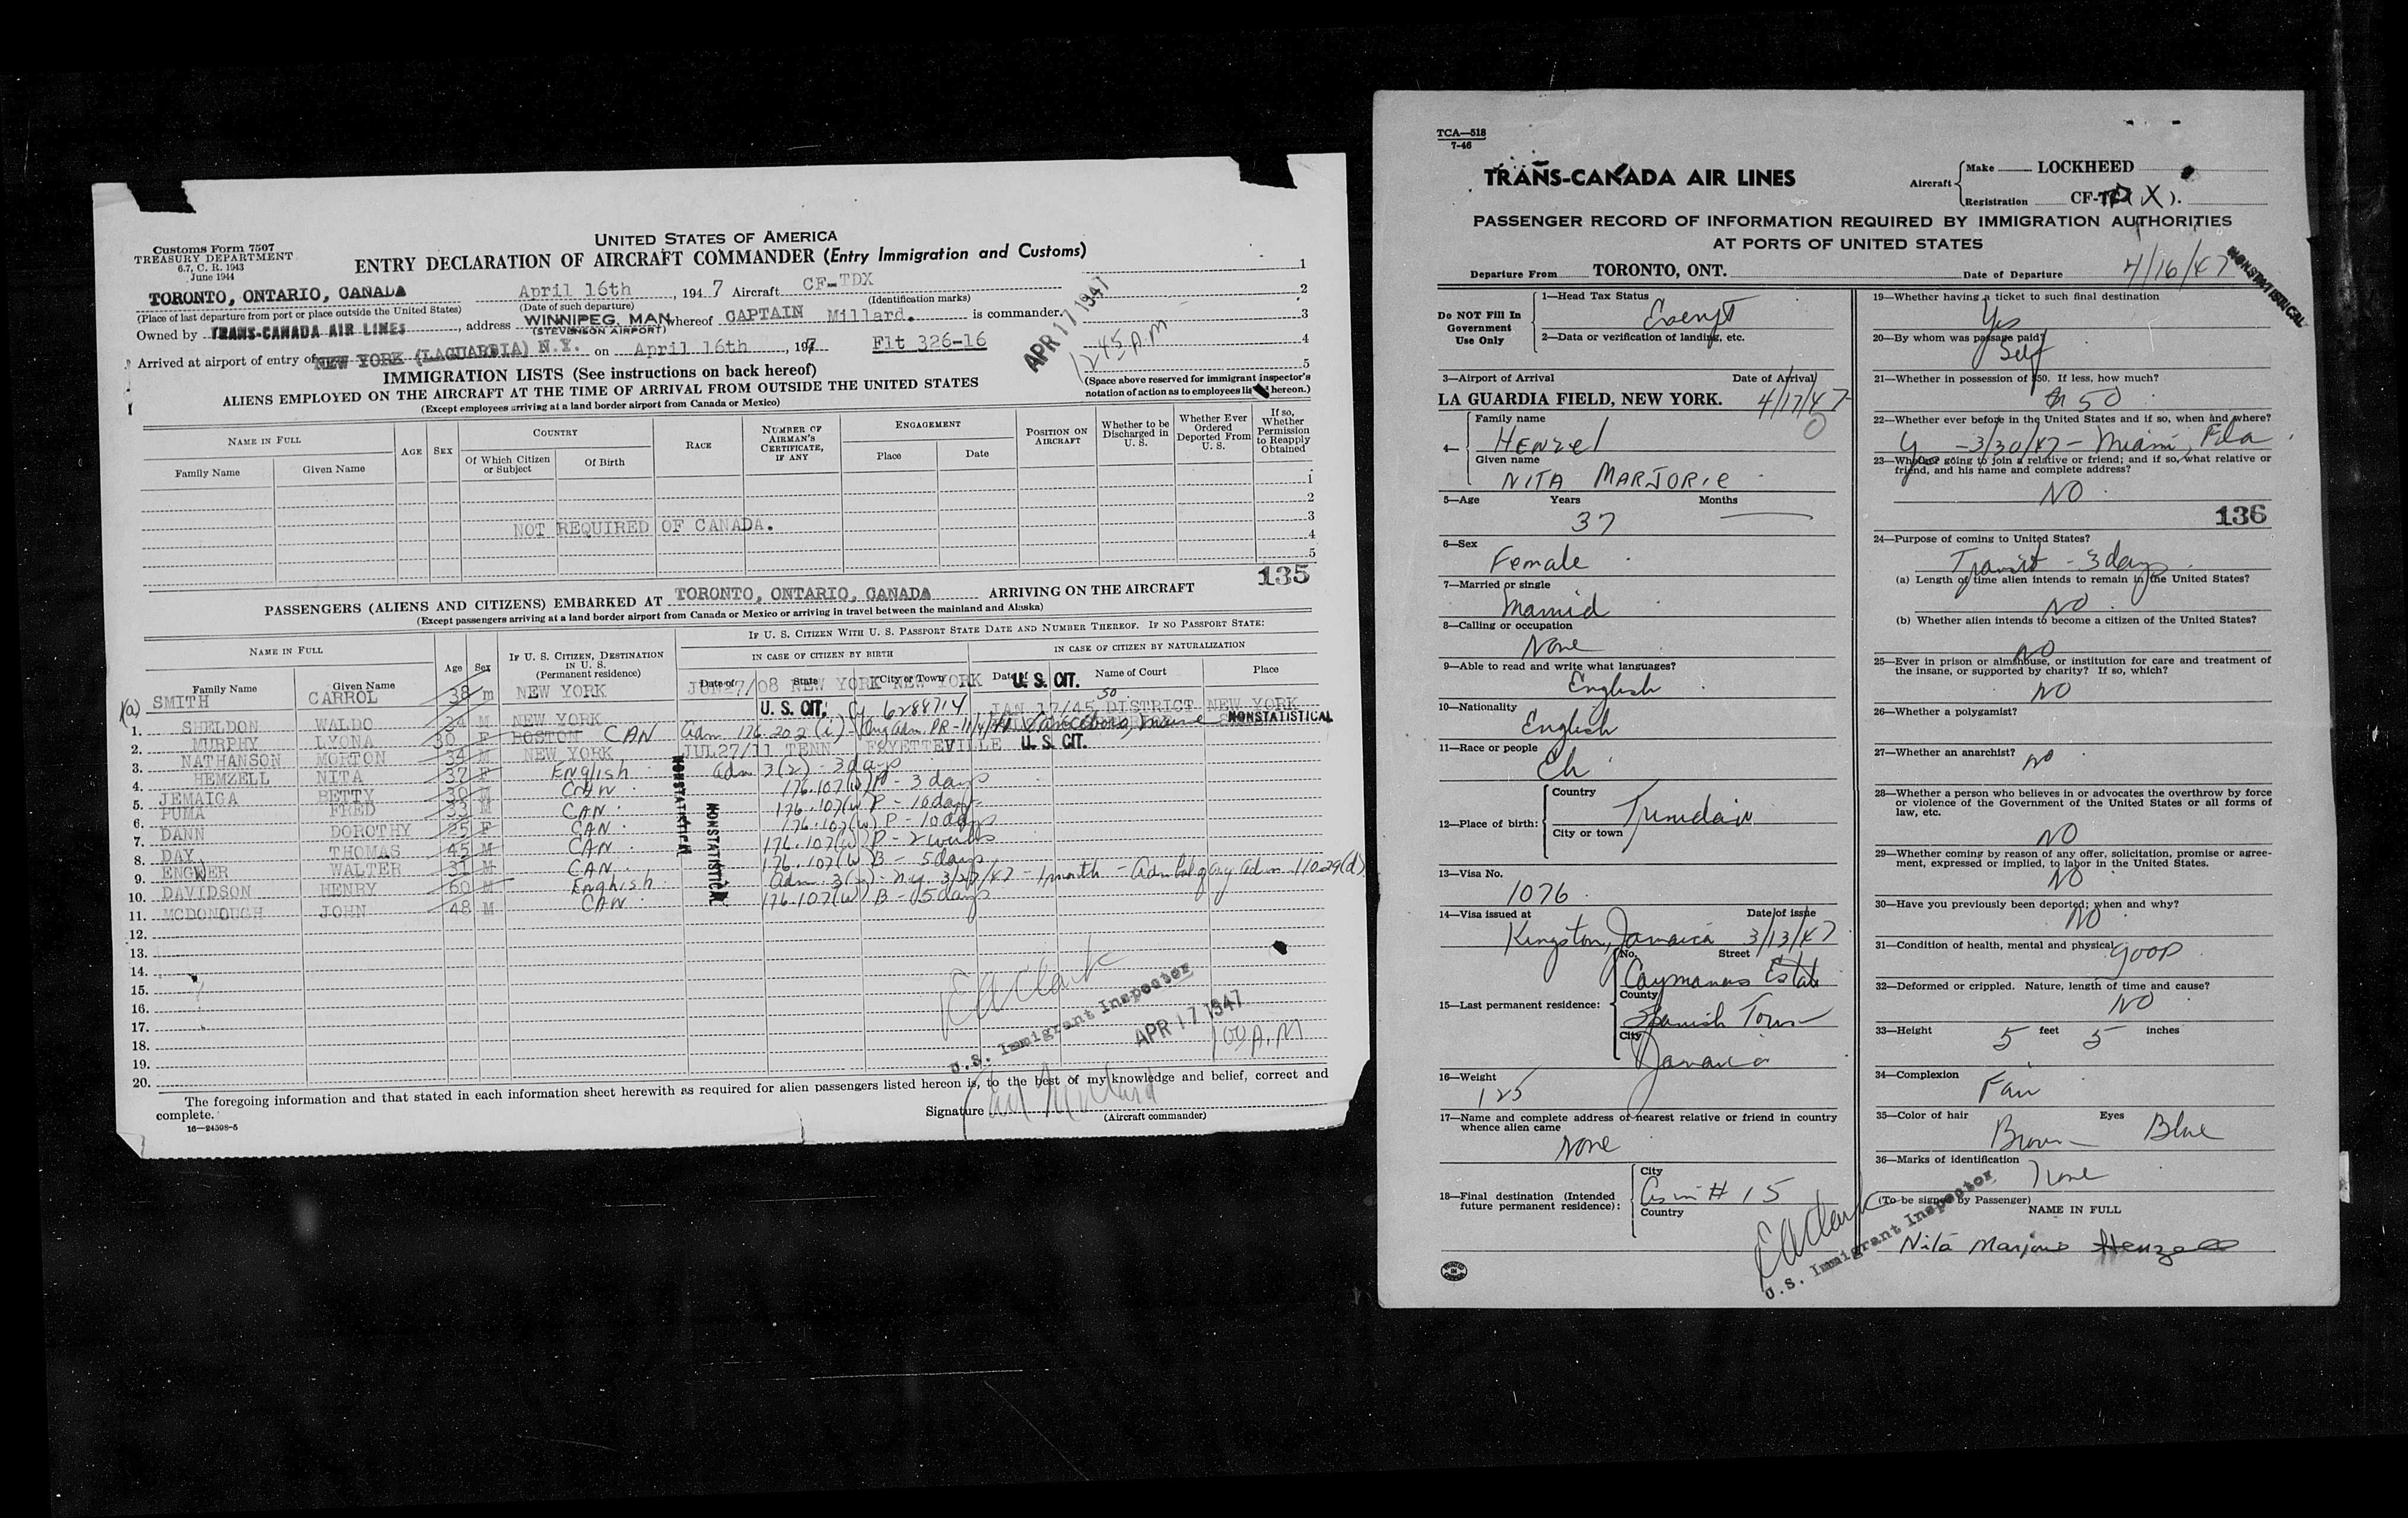 Customs Form 7507
TREASURY DEPARTMENT
6.7, C. R. 1943
June 1944
UNITED STATES OF AMERICA
ENTRY DECLARATION OF AIRCRAFT COMMANDER (Entry Immigration and Customs)
TORONTO, ONTARIO, CANADA April 16th, 1947 Aircraft CF-TDX
(Place of last departure from port or place outside the United States) (Date of such departure) (Identification marks)
Owned by TRANS-CANADA AIR LINES, address WINNIPEG, MAN. (STEVENSON AIRPORT) whereof CAPTAIN Millard. is commander.
Arrived at airport of entry of NEW YORK (LAGUARDIA) N.Y. on April 16th, 197 Flt 326-16
APR 17 1947
1245 A.M
1
2
3
4
5
(Space above reserved for immigrant inspector's notation of action as to employees listed hereon.)
IMMIGRATION LISTS (See instructions on back hereof)
ALIENS EMPLOYED ON THE AIRCRAFT AT THE TIME OF ARRIVAL FROM OUTSIDE THE UNITED STATES
(Except employees arriving at a land border airport from Canada or Mexico)
NAME IN FULL AGE SEX COUNTRY RACE NUMBER OF AIRMAN'S CERTIFICATE, IF ANY ENGAGEMENT POSITION ON AIRCRAFT Whether to be Discharged in U. S. Whether Ever Ordered Deported From U. S. If so, Whether Permission to Reapply Obtained
Family Name Given Name Of Which Citizen or Subject Of Birth Place Date
1
2
NOT REQUIRED OF CANADA. 3
4
5
135
PASSENGERS (ALIENS AND CITIZENS) EMBARKED AT TORONTO, ONTARIO, CANADA ARRIVING ON THE AIRCRAFT
(Except passengers arriving at a land border airport from Canada or Mexico or arriving in travel between the mainland and Alaska)
NAME IN FULL Age Sex IF U. S. CITIZEN, DESTINATION IN U. S. (Permanent residence) IF U. S. CITIZEN WITH U. S. PASSPORT STATE DATE AND NUMBER THEREOF. IF NO PASSPORT STATE:
IN CASE OF CITIZEN BY BIRTH IN CASE OF CITIZEN BY NATURALIZATION
Family Name Given Name Date of State City or Town Date of Name of Court Place
1(a) SMITH CARROL 38 m NEW YORK JUN27/08 NEW YORK NEW YORK U. S. CIT.
1. SHELDON WALDO 24 M NEW YORK U. S. CIT. 6288714 JAN 17/45 DISTRICT NEW YORK
2. MURPHY LYONA 30 F BOSTON CAN Adm 176.202 (i) Vanceboro, Maine NONSTATISTICAL
3. NATHANSON MORTON 34 M NEW YORK JUL27/11 TENN FAYETTEVILLE U. S. CIT.
4. HEMZELL NITA 37 F English Adm 3(2) - 3 days
5. JEMAICA BETTY 30 M CAN 176.107(W) P - 3 days
6. PUMA FRED 33 M CAN. 176.107(W) P - 10 days
7. DANN DOROTHY 25 F CAN. 176.107(W) P - 10 days
8. DAY THOMAS 45 M CAN. 176.107(W) P - 2 weeks
9. ENGNER WALTER 31 M CAN. 176.107(W) B - 5 days
10. DAVIDSON HENRY 60 M English Adm. 3(2) - N.Y. 3/27/47 - 1 month - Adm bal of orig adm 110.29(d)
11. MCDONOUGH JOHN 48 M CAN. 176.107(W) B - 5 days
NONSTATISTICAL
NONSTATISTICAL
12.
13.
14.
15.
16.
17.
18.
19.
20.
E A Clark
U.S. Immigrant Inspector
APR 17 1947
100 A.M
The foregoing information and that stated in each information sheet herewith as required for alien passengers listed hereon is, to the best of my knowledge and belief, correct and
complete.
Signature Millard
(Aircraft commander)
16—24598-5
TCA—518
7-46
TRANS-CANADA AIR LINES
Aircraft Make LOCKHEED
Registration CF-TDX).
PASSENGER RECORD OF INFORMATION REQUIRED BY IMMIGRATION AUTHORITIES
AT PORTS OF UNITED STATES
Departure From TORONTO, ONT. Date of Departure 4/16/47
NONSTATISTICAL
Do NOT Fill In Government Use Only
1—Head Tax Status
Exempt
2—Data or verification of landing, etc.
3—Airport of Arrival Date of Arrival
LA GUARDIA FIELD, NEW YORK. 4/17/47
4— Family name
Henzel
Given name
NITA MARJORIE
5—Age Years Months
37
6—Sex
Female
7—Married or single
Married
8—Calling or occupation
None
9—Able to read and write what languages?
English
10—Nationality
English
11—Race or people
Eh
12—Place of birth: Country
Trinidad
City or town
13—Visa No.
1076
14—Visa issued at Date of issue
Kingston, Jamaica 3/13/47
15—Last permanent residence: No. Street
Caymanas Estate
County
Spanish Town
City
Jamaica
16—Weight
125
17—Name and complete address of nearest relative or friend in country whence alien came
None
18—Final destination (Intended future permanent residence): City
As in # 15
Country
19—Whether having a ticket to such final destination
Yes
20—By whom was passage paid?
Self
21—Whether in possession of $50. If less, how much?
50
22—Whether ever before in the United States and if so, when and where?
Y - 3/30/47 - Miami, Fla
23—Whether going to join a relative or friend; and if so, what relative or friend, and his name and complete address?
NO
136
24—Purpose of coming to United States?
Transit - 3 days
(a) Length of time alien intends to remain in the United States?
NO
(b) Whether alien intends to become a citizen of the United States?
NO
25—Ever in prison or almshouse, or institution for care and treatment of the insane, or supported by charity? If so, which?
NO
26—Whether a polygamist?
27—Whether an anarchist?
NO
28—Whether a person who believes in or advocates the overthrow by force or violence of the Government of the United States or all forms of law, etc.
NO
29—Whether coming by reason of any offer, solicitation, promise or agreement, expressed or implied, to labor in the United States.
NO
30—Have you previously been deported; when and why?
NO
31—Condition of health, mental and physical
GOOD
32—Deformed or crippled. Nature, length of time and cause?
NO
33—Height 5 feet 5 inches
34—Complexion
Fair
35—Color of hair Eyes
Brown Blue
36—Marks of identification
None
(To be signed by Passenger)
NAME IN FULL
Nita Marjorie Henzell
E A Clark
U.S. Immigrant Inspector